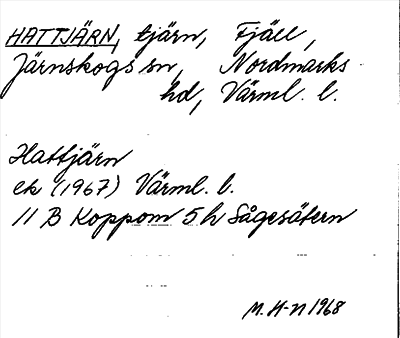 HATTJÄRN, tjärn, Fjäll,
Järnskogs sn, Nordmarks
hd, Värml. l.
Hattjärn
ek (1967) Värml. l.
11 B Koppom 5 h Sågesätern
M. H-n 1968